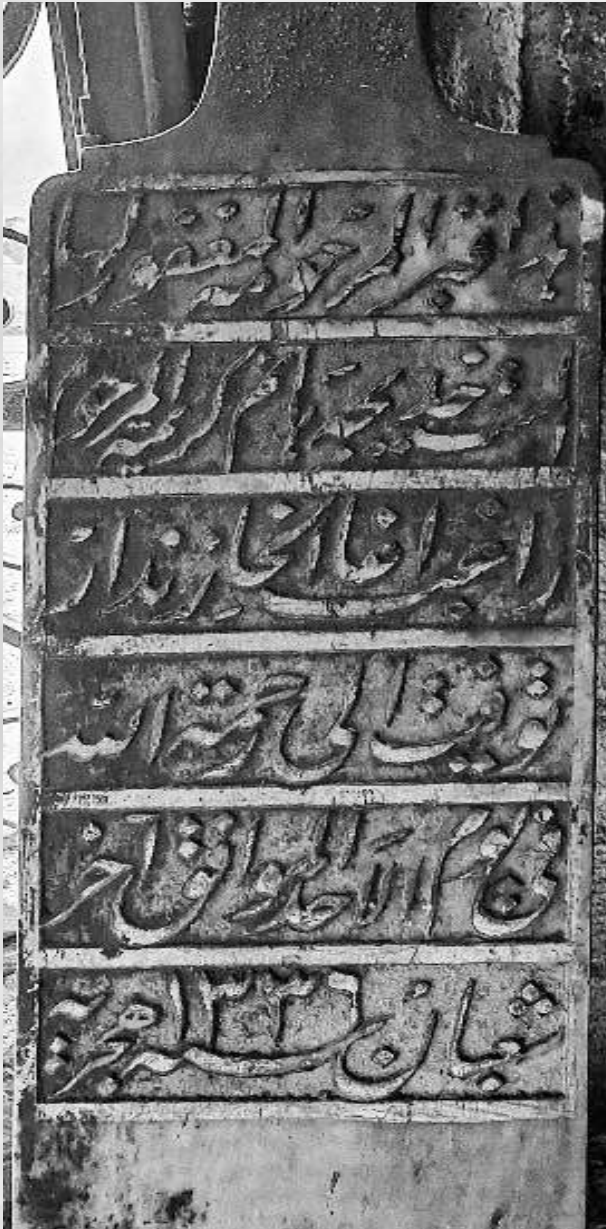 هذا قبر المرحومه المغفور لها
الست خديجة هانم كريمة المرحوم
راغب اغا الخازندار
توفيت الى رحمة الله
في يوم الاحد الموافق آخر
شعبان سنة ١٣٣٦ هجرية